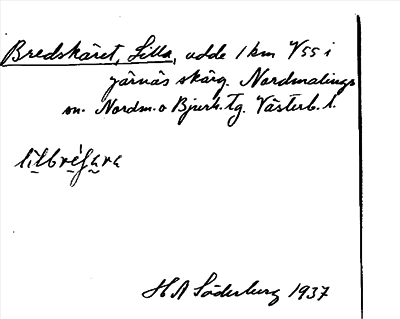 Bredskäret, Lilla, udde 1 km VSS i
Järnäs skärg. Nordmalings
sn. Nordm. o Bjurh. tg. Västerb. l.
H A Söderberg 1937